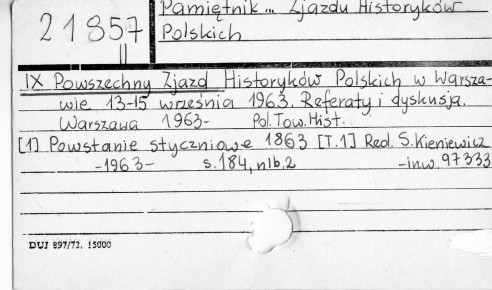 21857
Pamiętnik... Zjazdu Historyków
Polskich
IX Powszechny Zjazd Historyków Polskich w Warsza-
wie 13-15 września 1963. Referaty i dyskusja.
Warszawa 1963- Pol. Tow. Hist.
[1] Powstanie styczniowe 1863 [T.1] Red. S. Kieniewicz
-1963- s. 184, nlb. 2 -inw. 97333
DUJ 897/73. 15000